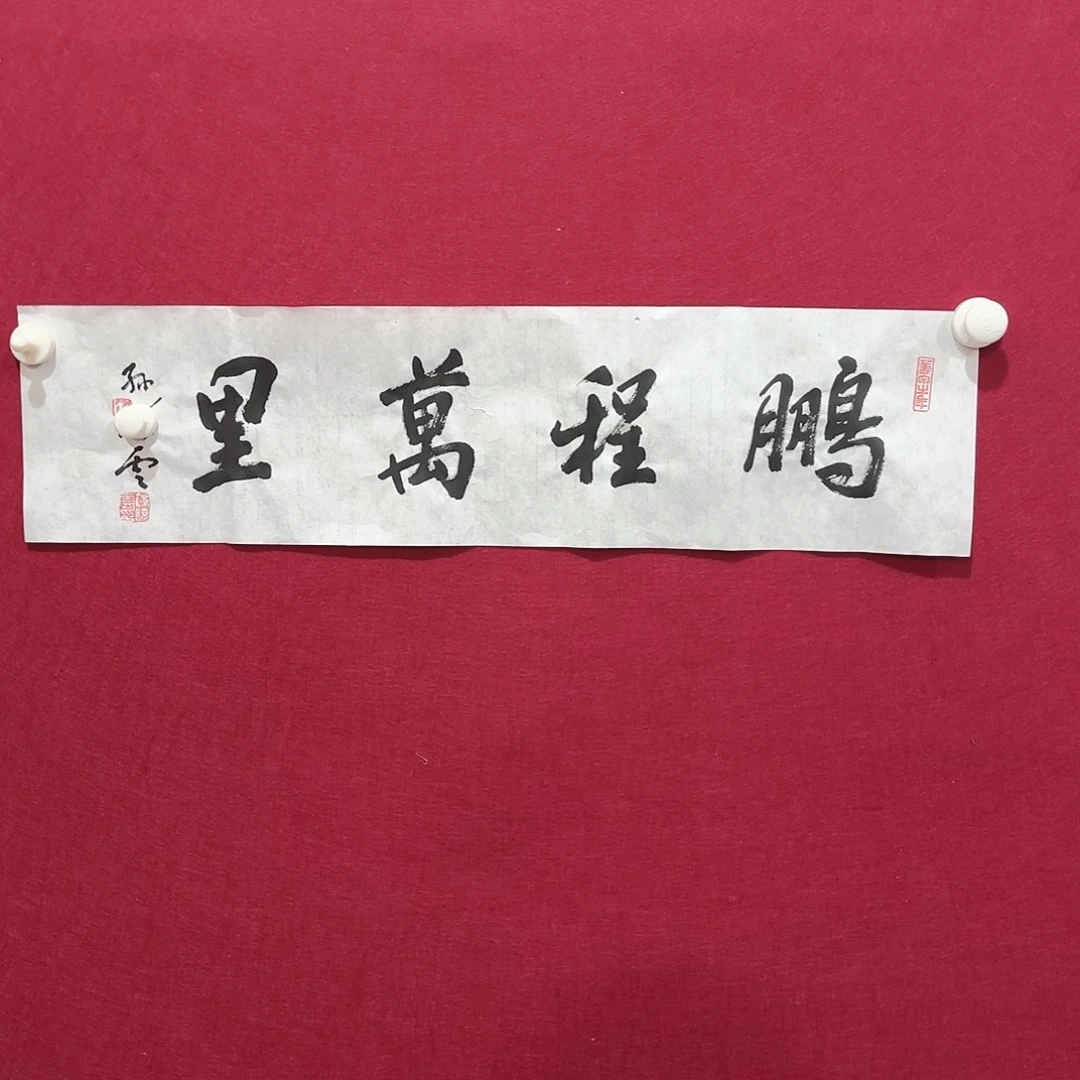 鵬程萬里
孫
雲